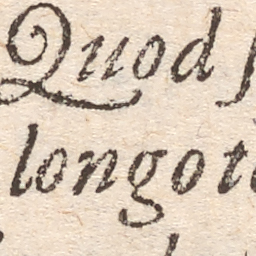 Quod
longot